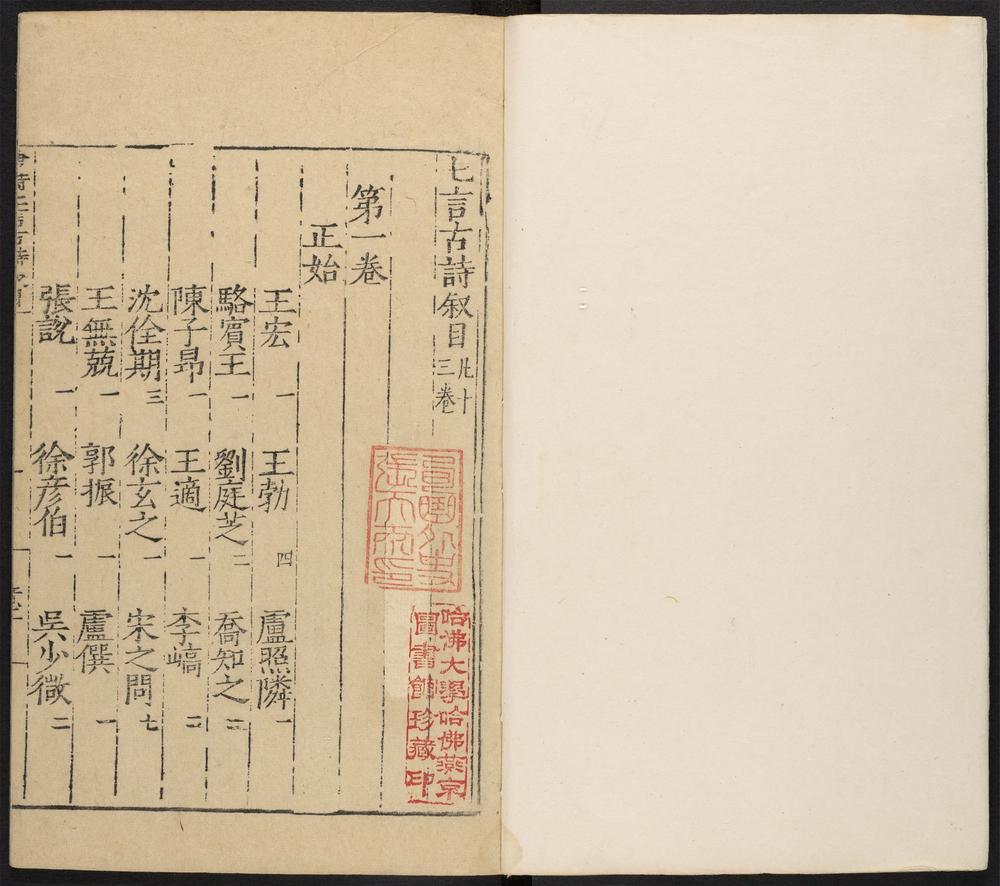 七言古詩叙目凡十三卷
第一卷
正始
王宏 一 王勃 四 盧照隣 一
駱賓王 一 劉庭芝 二 喬知之 二
陳子昂 一 王適 一 李嶠 二
沈佺期 三 徐玄之 一 宋之問 七
王無競 一 郭振 一 盧僎 一
張說 一 徐彦伯 一 吳少微 二
哈佛大學哈佛燕京
圖書館珍藏印